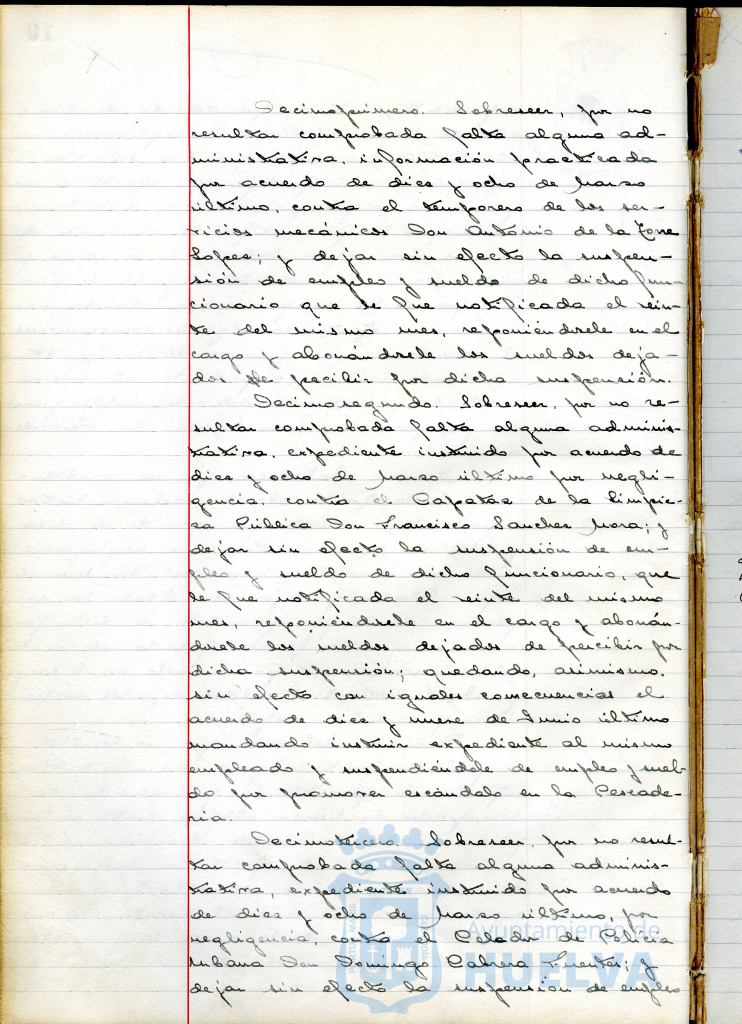 Decimoprimero. Sobreseer, por no
resultar comprobada falta alguna ad-
ministrativa, información practicada
por acuerdo de diez y ocho de Marzo
último, contra el temporero de los ser-
vicios mecánicos Don Antonio de la Torre
Lopez; y dejar sin efecto la suspen-
sión de empleo y sueldo de dicho fun-
cionario que le fue notificada el vein-
te del mismo mes, reponiéndosele en el
cargo y abonándosele los sueldos deja-
dos de percibir por dicha suspensión.
Decimosegundo. Sobreseer, por no re-
sultar comprobada falta alguna adminis-
trativa, expediente instruido por acuerdo de
diez y ocho de Marzo último por negli-
gencia, contra el Capataz de la Limpie-
za Pública Don Francisco Sanchez Mora; y
dejar sin efecto la suspensión de em-
pleo y sueldo de dicho funcionario, que
le fue notificada el veinte del mismo
mes, reponiéndosele en el cargo y abonán-
dosele los sueldos dejados de percibir por
dicha suspensión; quedando, asimismo,
sin efecto con iguales consecuencias el
acuerdo de diez y nueve de Junio último
mandando instruir expediente al mismo
empleado y suspendiéndole de empleo y suel-
do por promover escándalo en la Pescade-
ria.
Decimotercero. Sobreseer, por no resul-
tar comprobada falta alguna adminis-
trativa, expediente instruido por acuerdo
de diez y ocho de Marzo último, por
negligencia, contra el Celador de Policia
Urbana Don Domingo Cabrera Fuentes; y
dejar sin efecto la suspensión de empleo
Ayuntamiento de
HUELVA